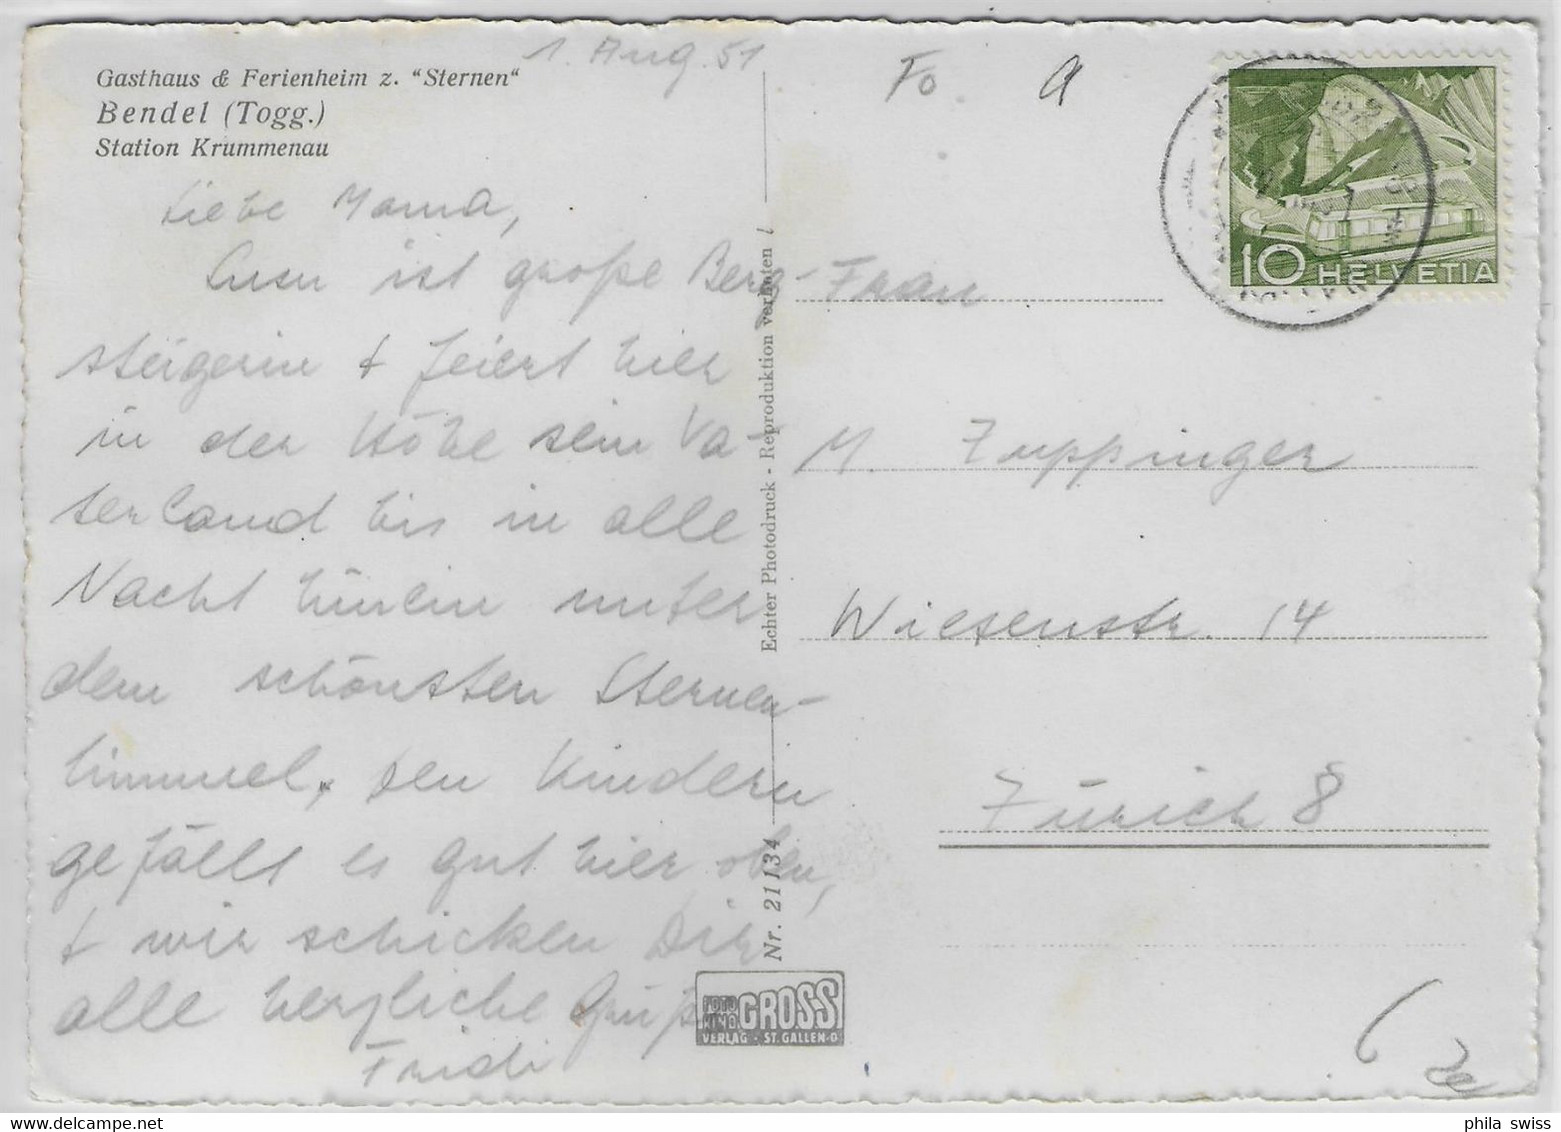 1. Aug. 51
Gasthaus & Ferienheim z. "Sternen"
Bendel (Togg.)
Station Krummenau
Liebe Mama,
ist große Berg-
steigerin + feiert hier
in der Höhe sein Va-
terland bis in alle
Nacht hinein unter
dem schönsten Sternen-
himmel, den Kindern
gefällt es gut hier oben,
+ wir schicken Dir
alle herzliche Grüße
Fridi
Echter Photodruck - Reproduktion verboten !
Nr. 21134
FOTO
KINO
GROSS
VERLAG · ST.GALLEN-O
Fo. a
10 HELVETIA
Frau
M. Zuppinger
Wiesenstr. 14
Zürich 8
phila swiss